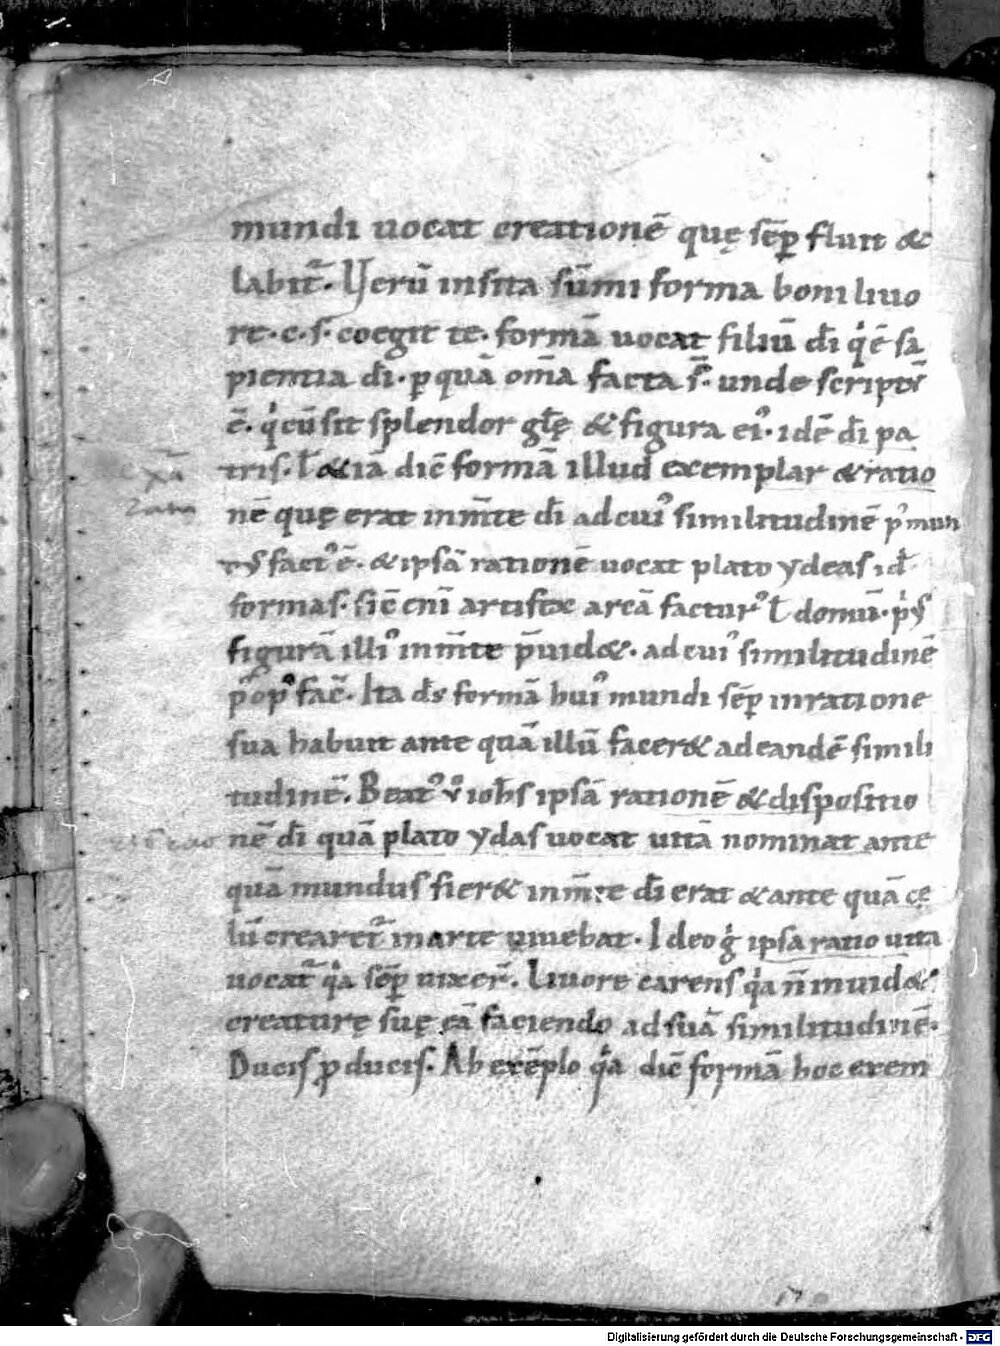 mundi uocat creationē quę sēp fluit &
labit᷑. Verū insita sūmi forma boni liuo
re .c. s. coegit te. formā uocat filiū dī qͥ ē sa
pientia dī. p quā om̄a facta s̄. unde scriptū
ē. qͥ cū sit splendor głę & figura ei᷒. idē dī pa
tris. ł &iā dic̄ formā illud exemplar & ratio
nē quę erat in m̄te dī ad cui᷒ similitudinē p᷒ mun
d᷒ fact᷒ ē. & ipsā rationē uocat plato ydeas id̄
formas. sic̄ eni᷒ artifex arcā factur᷒ ł domū. p᷒᷒
figurā illi᷒ in m̄te p̄uid&. ad cui᷒ similitudinē
p᷒ op᷒ fac̄. Ita ds̄ formā hui᷒ mundi sēp in ratione
sua habuit ante quā illū facer& ad eandē simili
tudinē. Beat᷒ v̊ ioh̄s ipsā rationē & dispositio
nē dī quā plato ydas uocat uitā nominat ante
quā mundus fier& in m̄te dī erat & ante quā cę
lū crearet᷑ in arte uiuebat. Ideo g̊ ipsa ratio uita
uocat᷑ qͥa sēp uixer̄. Liuore carens qͥa n̄ inuid&
creaturę suę eā faciendo ad suā similitudinē.
Ducis p ducis. Ab exēplo qͥa dic̄ formā hoc exem
Digitalisierung gefördert durch die Deutsche Forschungsgemeinschaft - DFG